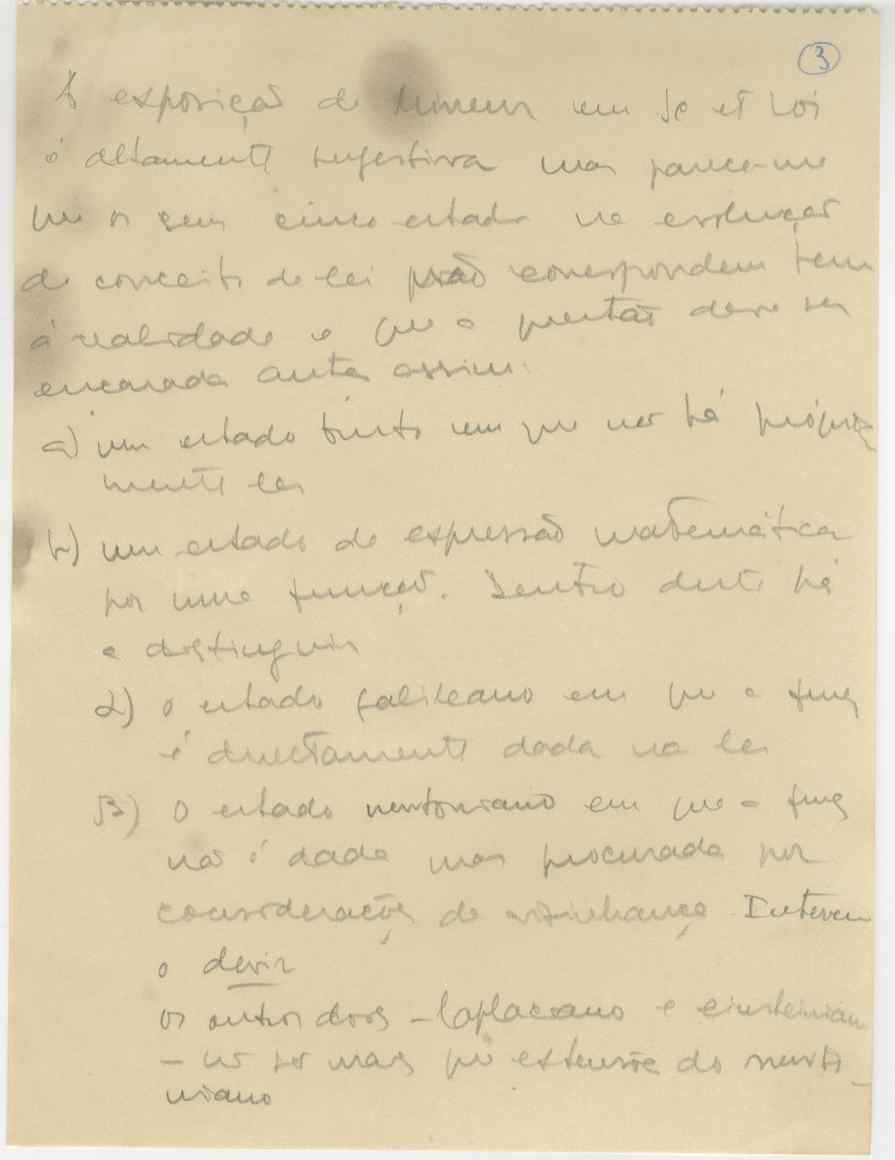 3
A exposição de Mineur em Je et Loi
é altamente sugestiva mas parece-me
que os seus cinco estados na evolução
do conceito de lei não correspondem bem
à realidade e que a questão deve ser
encarada antes assim:
a) um estado bruto em que não há própria
mente lei
b) um estado de expressão matemática
por uma função. Dentro deste há
a distinguir
α) o estado galileano em que a funç
é directamente dada na lei
β) o estado newtoniano em que a funç
não é dada mas procurada por
considerações de vizinhança. Intervem
o devir
os outros dois – laplaceano e einsteinian
– não são mais que extensões do newto
niano